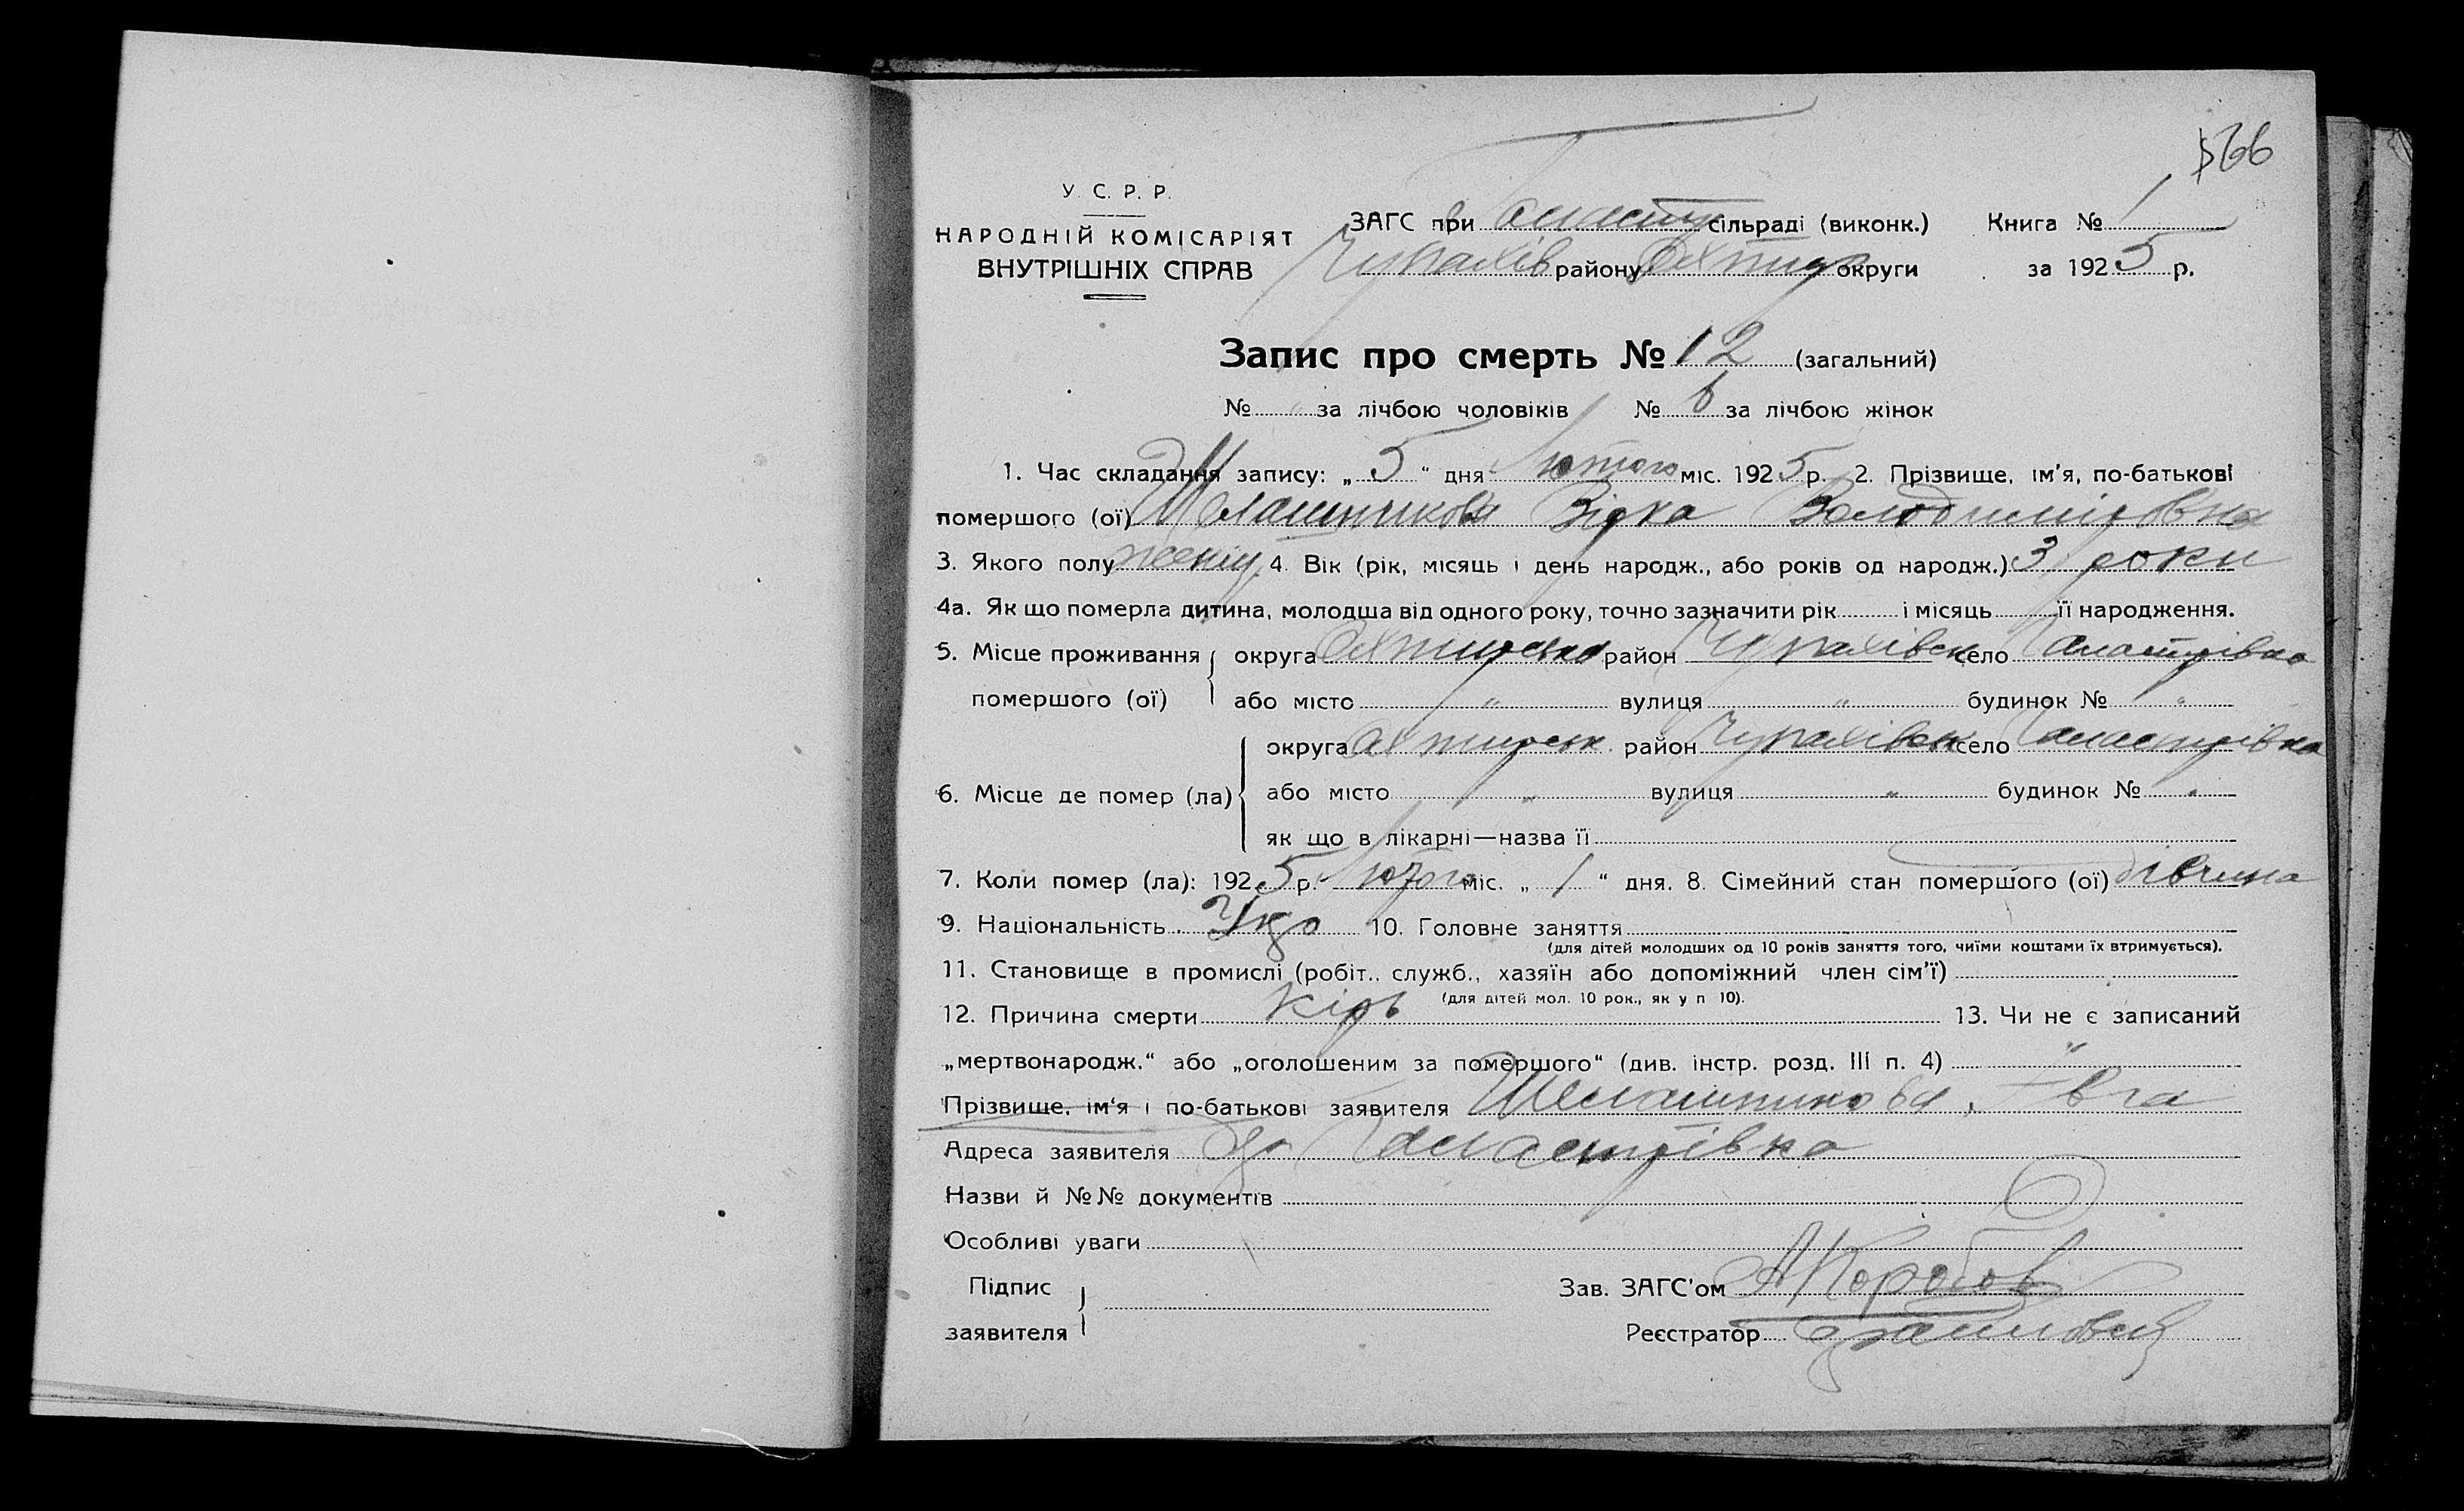 566
У. С. Р. Р.
НАРОДНІЙ КОМІСАРІЯТ
ВНУТРІШНІХ СПРАВ
ЗАГС при сільраді (виконк.) Книга № 1
Чупахів району Охтир округи за 1925 р.
Запис про смерть № 12 (загальний)
№ за лічбою чоловіків № 6 за лічбою жінок
1. Час складання запису: „5“ дня Лютого міс. 1925 р. 2. Прізвище, ім'я, по-батькові
помершого (ої) Вірка Володимировна
3. Якого полу женщ. 4. Вік (рік, місяць і день народж., або років од народж.) 3 роки
4а. Як що померла дитина, молодша від одного року, точно зазначити рік і місяць її народження.
5. Місце проживання округа Охтирська район Чупахівськ село
помершого (ої) або місто " вулиця " будинок № "
округа Охтирськ район Чупахівськ село
6. Місце де помер (ла) або місто " вулиця " будинок № "
як що в лікарні—назва її
7. Коли помер (ла): 1925 р. Лютого міс. „1“ дня. 8. Сімейний стан помершого (ої) дівчина
9. Національність Укр 10. Головне заняття
(для дітей молодших од 10 років заняття того, чиїми коштами їх втримується).
11. Становище в промислі (робіт., служб., хазяїн або допоміжний член сім'ї)
(для дітей мол. 10 рок., як у п 10).
12. Причина смерти Кірь 13. Чи не є записаний
„мертвонародж.“ або „оголошеним за помершого“ (див. інстр. розд. III п. 4) "
Прізвище, ім'я і по-батькові заявителя Ївга
Адреса заявителя
Назви й №№ документів
Особливі уваги
Підпис Зав. ЗАГС'ом АКоробов
заявителя Реєстратор